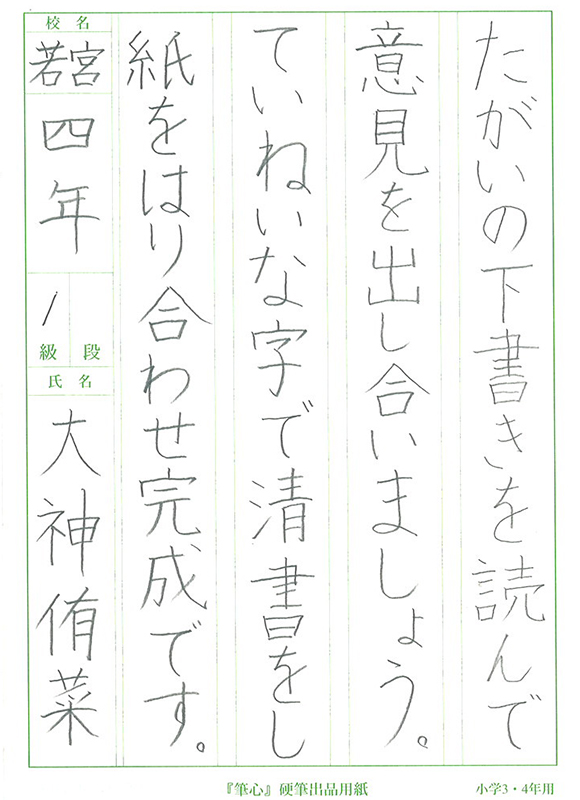 たがいの下書きを読んで
意見を出し合いましょう。
ていねいな字で清書をし
紙をはり合わせ完成です。
校名
若宮
四年
1
級 段
氏名
大神侑菜
『筆心』硬筆出品用紙
小学3・4年用